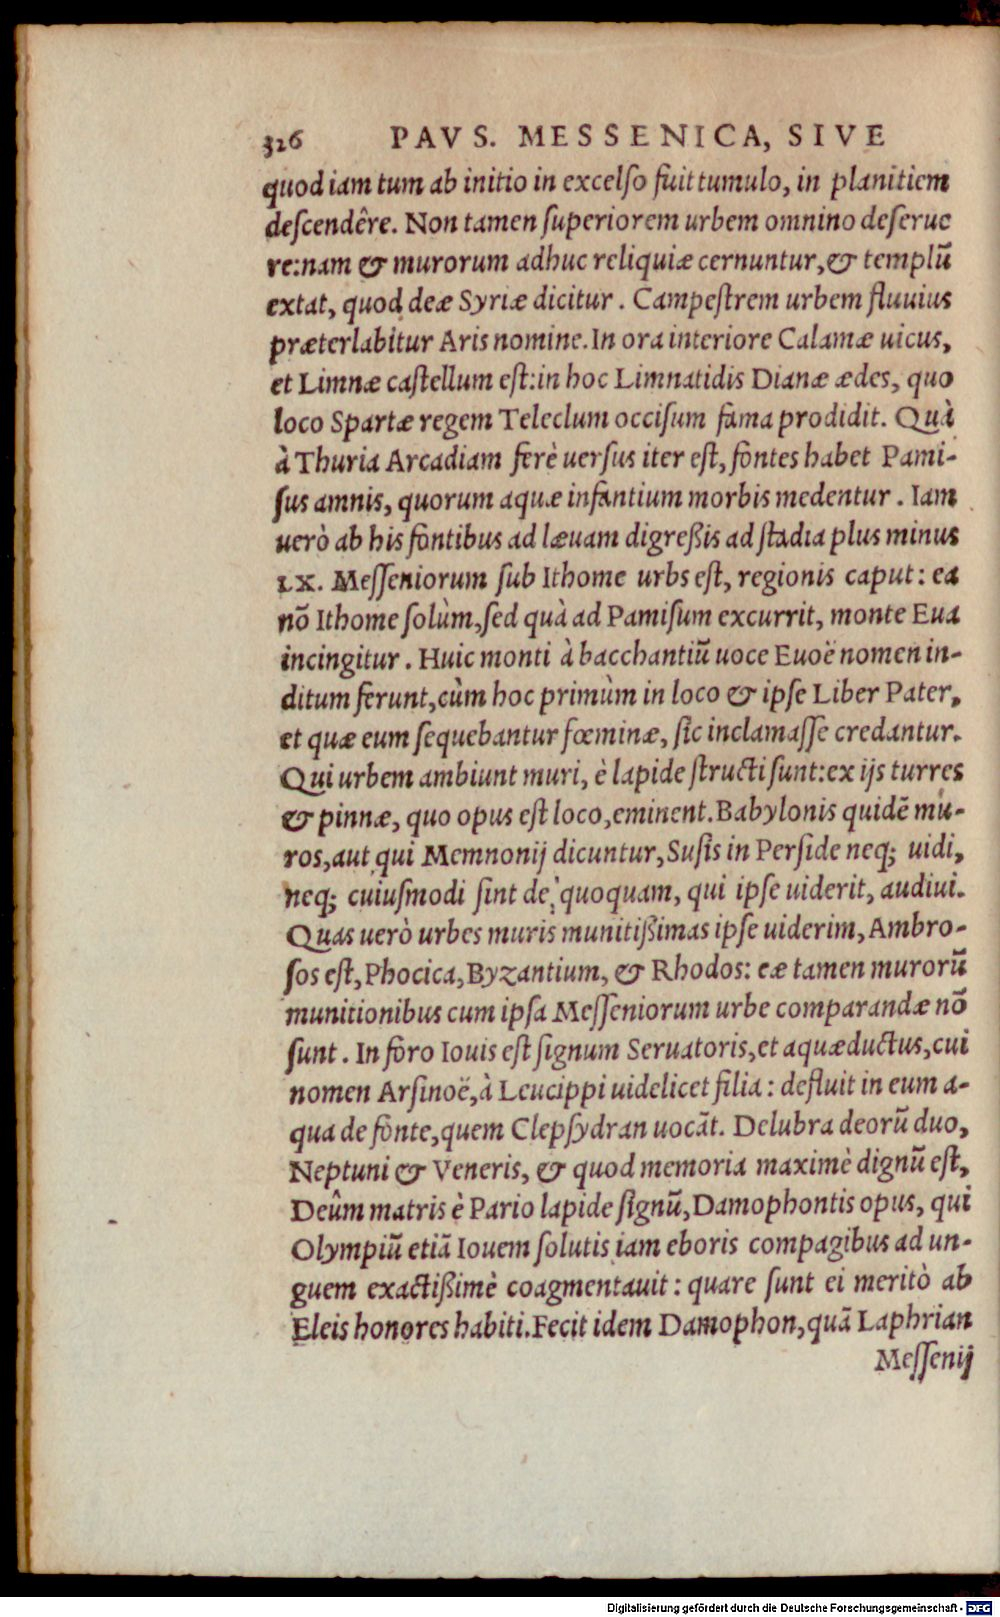 326 PAVS. MESSENICA, SIVE
quod iam tum ab initio in excelſo fuit tumulo, in planitiem
deſcendêre. Non tamen ſuperiorem urbem omnino deſerue
re:nam & murorum adhuc reliquiæ cernuntur,& templū
extat, quod deæ Syriæ dicitur. Campeſtrem urbem fluuius
præterlabitur Aris nomine. In ora interiore Calamæ uicus,
et Limnæ caſtellum eſt:in hoc Limnatidis Dianæ ædes, quo
loco Spartæ regem Teleclum occiſum fama prodidit. Quà
à Thuria Arcadiam ferè uerſus iter eſt, fontes habet Pami-
ſus amnis, quorum aquæ infantium morbis medentur. Iam
uerò ab his fontibus ad læuam digreßis ad ſtadia plus minus
LX. Meſſeniorum ſub Ithome urbs eſt, regionis caput: ea
nō Ithome ſolùm,ſed quà ad Pamiſum excurrit, monte Eua
incingitur. Huic monti à bacchantiū uoce Euoë nomen in-
ditum ferunt,cùm hoc primùm in loco & ipſe Liber Pater,
et quæ eum ſequebantur fœminæ, ſic inclamaſſe credantur.
Qui urbem ambiunt muri, è lapide ſtructi ſunt:ex ijs turres
& pinnæ, quo opus eſt loco,eminent. Babylonis quidē mu-
ros,aut qui Memnonij dicuntur,Suſis in Perſide neq; uidi,
neq; cuiuſmodi ſint de quoquam, qui ipſe uiderit, audiui.
Quas uerò urbes muris munitißimas ipſe uiderim, Ambro-
ſos eſt, Phocica, Byzantium, & Rhodos: eæ tamen murorū
munitionibus cum ipſa Meſſeniorum urbe comparandæ nō
ſunt. In foro Iouis eſt ſignum Seruatoris,et aquæductus,cui
nomen Arſinoë,à Leucippi uidelicet filia: defluit in eum a-
qua de fonte,quem Clepſydran uocāt. Delubra deorū duo,
Neptuni & Veneris, & quod memoria maximè dignū eſt,
Deûm matris è Pario lapide ſignū,Damophontis opus, qui
Olympiū etiā Iouem ſolutis iam eboris compagibus ad un-
guem exactißimè coagmentauit: quare ſunt ei meritò ab
Eleis honores habiti. Fecit idem Damophon,quā Laphrian
Meſſenij
Digitalisierung gefördert durch die Deutsche Forschungsgemeinschaft - DFG